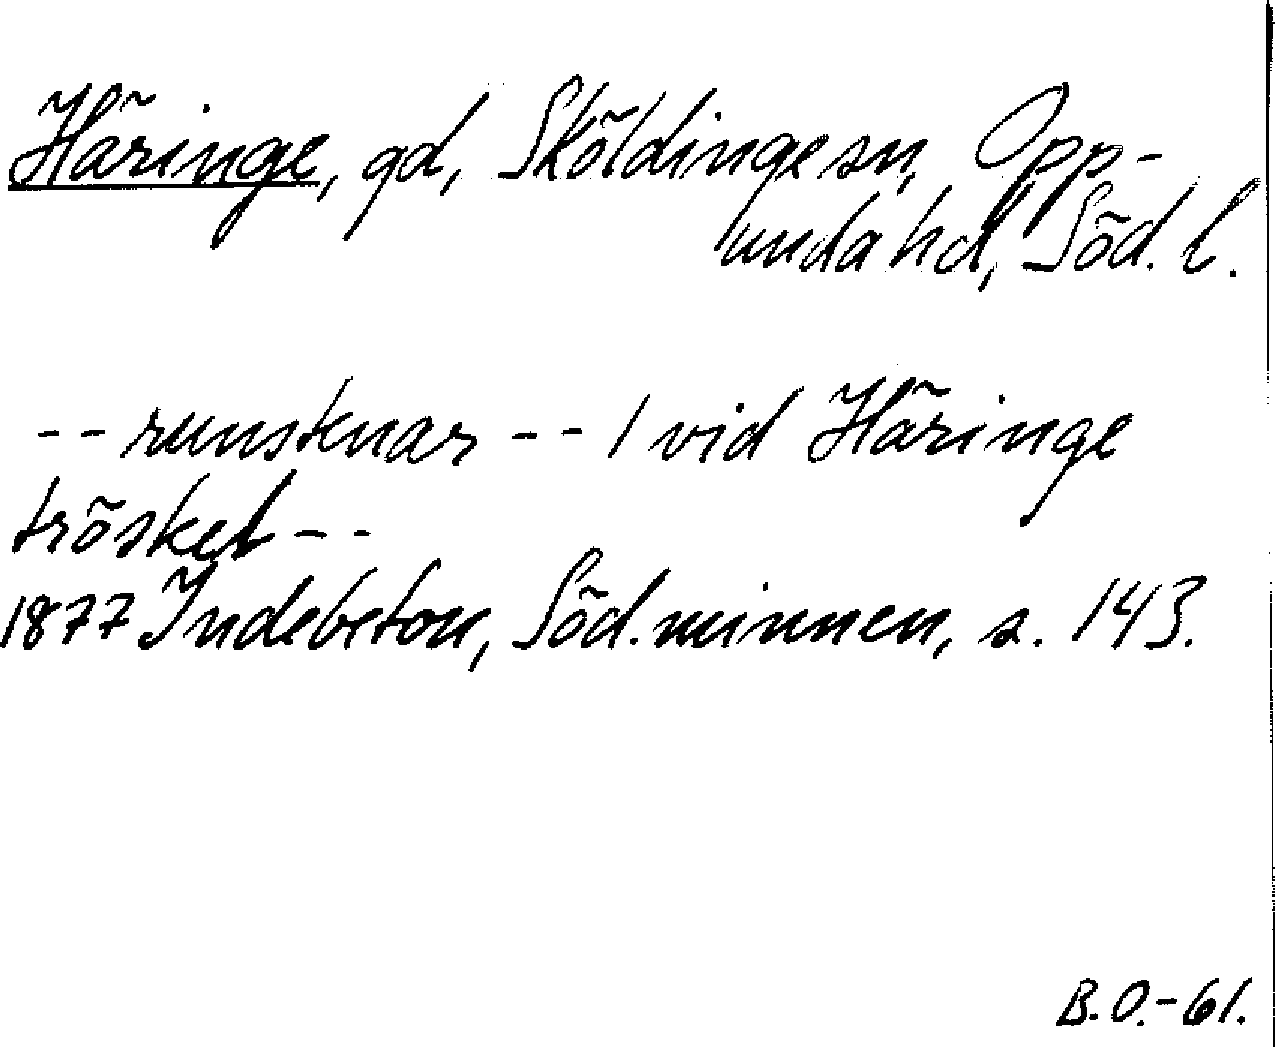 Häringe, gd, Sköldinge sn, Opp-
unda hd, Söd. l.
-- runsknar -- / vid Häringe
träsket --
1877 Indebetou, Söd. minnen, s. 143.
B.O.-61.